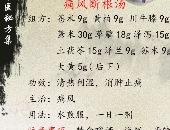 痛风断根汤
组方：苍术9g 黄柏9g 川牛膝9g
薏米30g 萆薢18g 泽泻15g
土茯苓15g 泽兰9g 苏木9g
大黄5g(后下)
功效：清热利湿、消肿止痛
主治：痛风
用法：水煎服，一日一剂
医秘方集